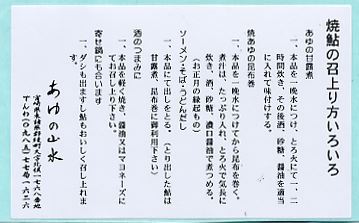 焼鮎の召上り方いろいろ
あゆの甘露煮
一、本品を一晩水につけ、とろ火にて一、二
時間炊き、その後酒、砂糖、醤油を適当
に入れて味付けする。
焼あゆの昆布巻
一、本品を一晩水につけてから昆布を巻く。
煮汁は、たっぷり入れ、とろ火で気長に
炊き、酒、砂糖、淡口醤油で煮つめる。
(お正月の縁起もの)
ソーメン・そば・うどんだし
一、本品にて出しをとる。(とり出した鮎は
甘露煮、昆布巻に御利用下さい)
酒のつまみに
一、本品を軽く焼き、醤油又はマヨネーズに
てお召し上り下さい。
寄せ鍋にも合います
一、ダシも出ますし鮎もおいしく召し上れま
す。
あゆの山水